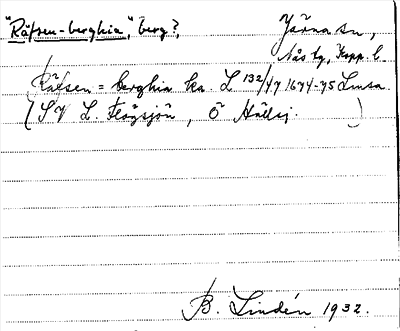 "Räfsen-berghia", berg?, Järna sn,
Nås tg, Kopp. l.
Räfsen = berghia ka. L 132/47 1674-75 Lmsa.
(SV L. Flögsjön, Ö Hällsj. )
B. Lindén 1932.